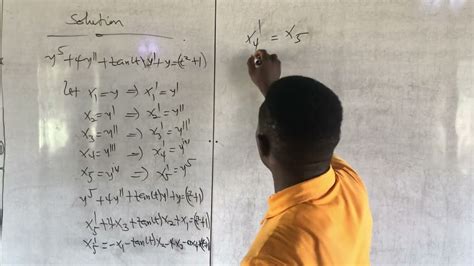 Solution
y⁵+4y''+tan(t)y'+y=(t²+1)
let x₁=y ⇒ x₁'=y'
x₂=y' ⇒ x₂'=y''
x₃=y'' ⇒ x₃'=y'''
x₄=y''' ⇒ x₄'=yⁱᵛ
x₅=yⁱᵛ ⇒ x₅'=y⁵
y⁵+4y''+tan(t)y'+y=(t²+1)
x₅'+4x₃+tan(t)x₂+x₁=(t²+1)
x₅'=-x₁-tan(t)x₂-4x₃
x₄' = x₅